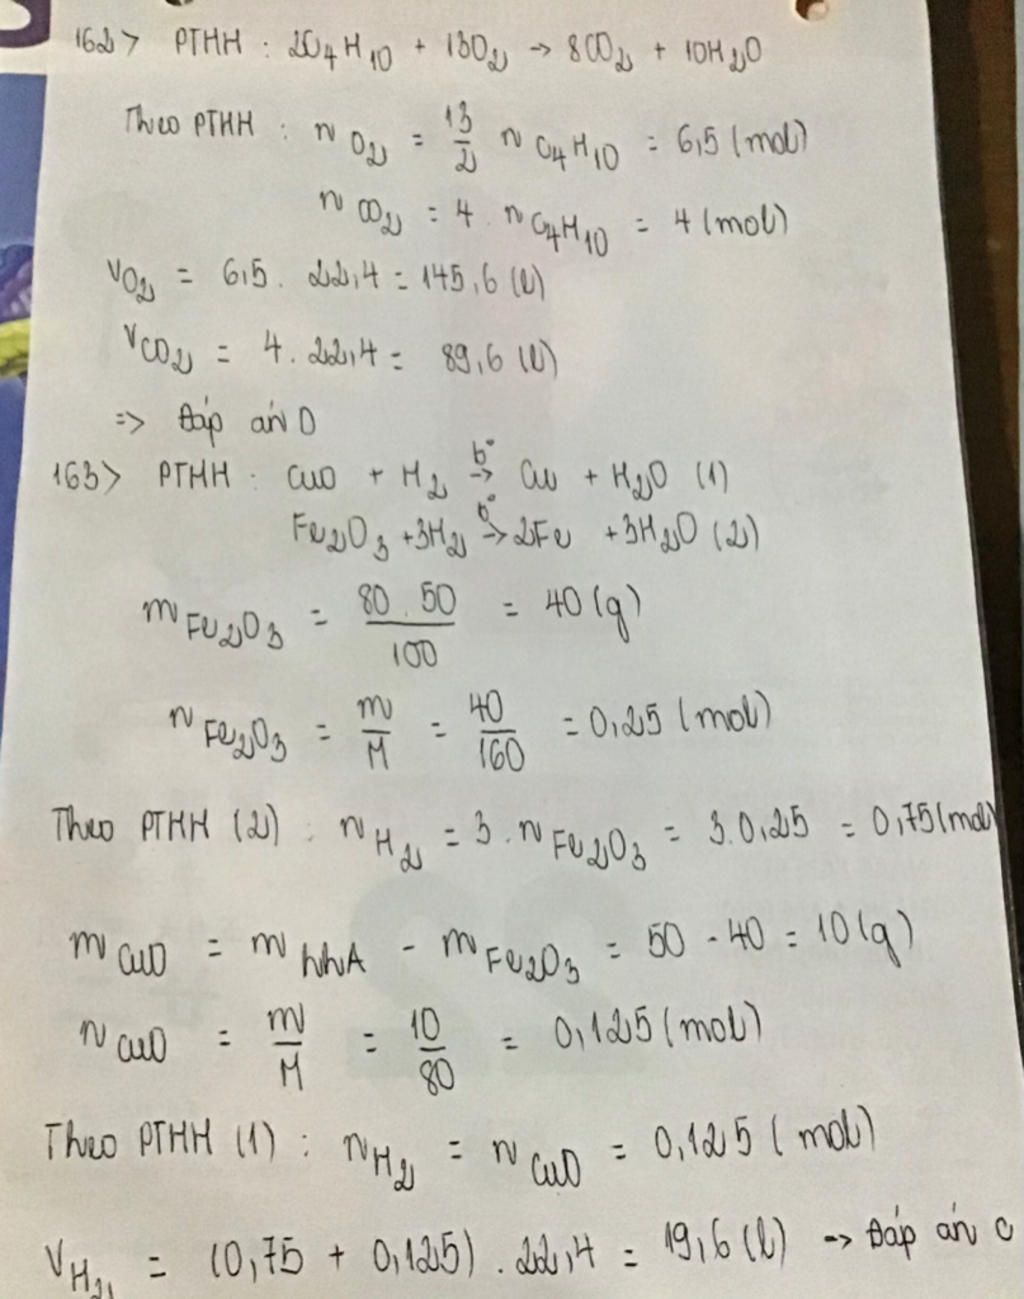 162> PTHH : 2C4H10 + 13O2 → 8CO2 + 10H2O
Theo PTHH : nO2 = 13/2 nC4H10 = 6,5 (mol)
nCO2 = 4 . nC4H10 = 4 (mol)
VO2 = 6,5 . 22,4 = 145,6 (l)
VCO2 = 4 . 22,4 = 89,6 (l)
=> Đáp án D
163> PTHH : CuO + H2 →(t°) Cu + H2O (1)
Fe2O3 + 3H2 →(t°) 2Fe + 3H2O (2)
mFe2O3 = 80 . 50 / 100 = 40 (g)
nFe2O3 = m/M = 40/160 = 0,25 (mol)
Theo PTHH (2) : nH2 = 3 . nFe2O3 = 3 . 0,25 = 0,75 (mol)
mCuO = mhhA - mFe2O3 = 50 - 40 = 10 (g)
nCuO = m/M = 10/80 = 0,125 (mol)
Theo PTHH (1) : nH2 = nCuO = 0,125 (mol)
VH2 = (0,75 + 0,125) . 22,4 = 19,6 (l) → Đáp án C